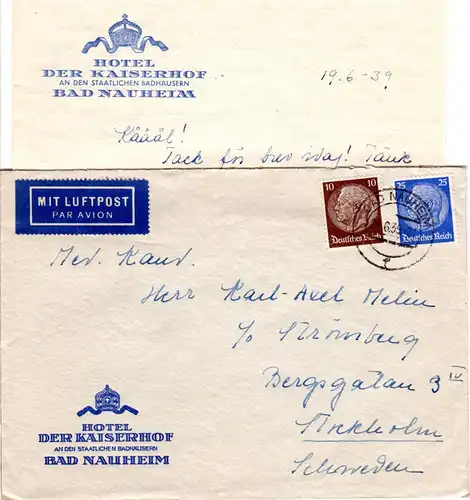 HOTEL
DER KAISERHOF
AN DEN STAATLICHEN BADHÄUSERN
BAD NAUHEIM
19.6-39
Kååål!
Tack för brev idag! Tänk
MIT LUFTPOST
PAR AVION
10 10
Deutsches Reich
25 25
Deutsches Reich
BAD NAUHEIM
Med. Kand.
Herr Karl-Axel Melin
c/o Strömberg
Bergsgatan 9 IV
Stockholm
Schweden
HOTEL
DER KAISERHOF
AN DEN STAATLICHEN BADHÄUSERN
BAD NAUHEIM